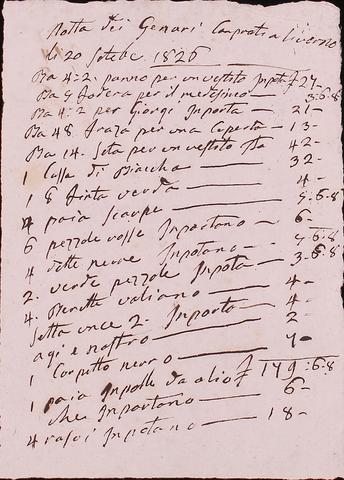 Notta dei Genari Comprati a Livorno
li 20 Sotebe 1826
Ba 4:2: panno per un vestito Inpota £ 24 -
Ba 9 fodera per il medesimo — 3:6:8
Ba 4:2 per Giorgi Inporta — 21 -
Ba 48 per una Coperta — 13 -
Ba 14. Seta per un vestito — 42 -
1 Casse di Biacha — 32 -
1 8 tinta verda — 4 -
4 paia Scarpe — 9:6:8
6 pezzole rosse Inportano — 6 -
4 dette nerre Inpotano — 9:6:8
2. verde pezzole Inpota — 3:6:8
4. Berette valiano — 4 -
Setta once 2 - Inporta — 4 -
agi e nastro — 2 -
1 Corpetto nerro — 9 -
£ 179:6:8
1 paia Inpolle da olio
che Inportano — 6 -
4 rasoi Inpotano — 18 -